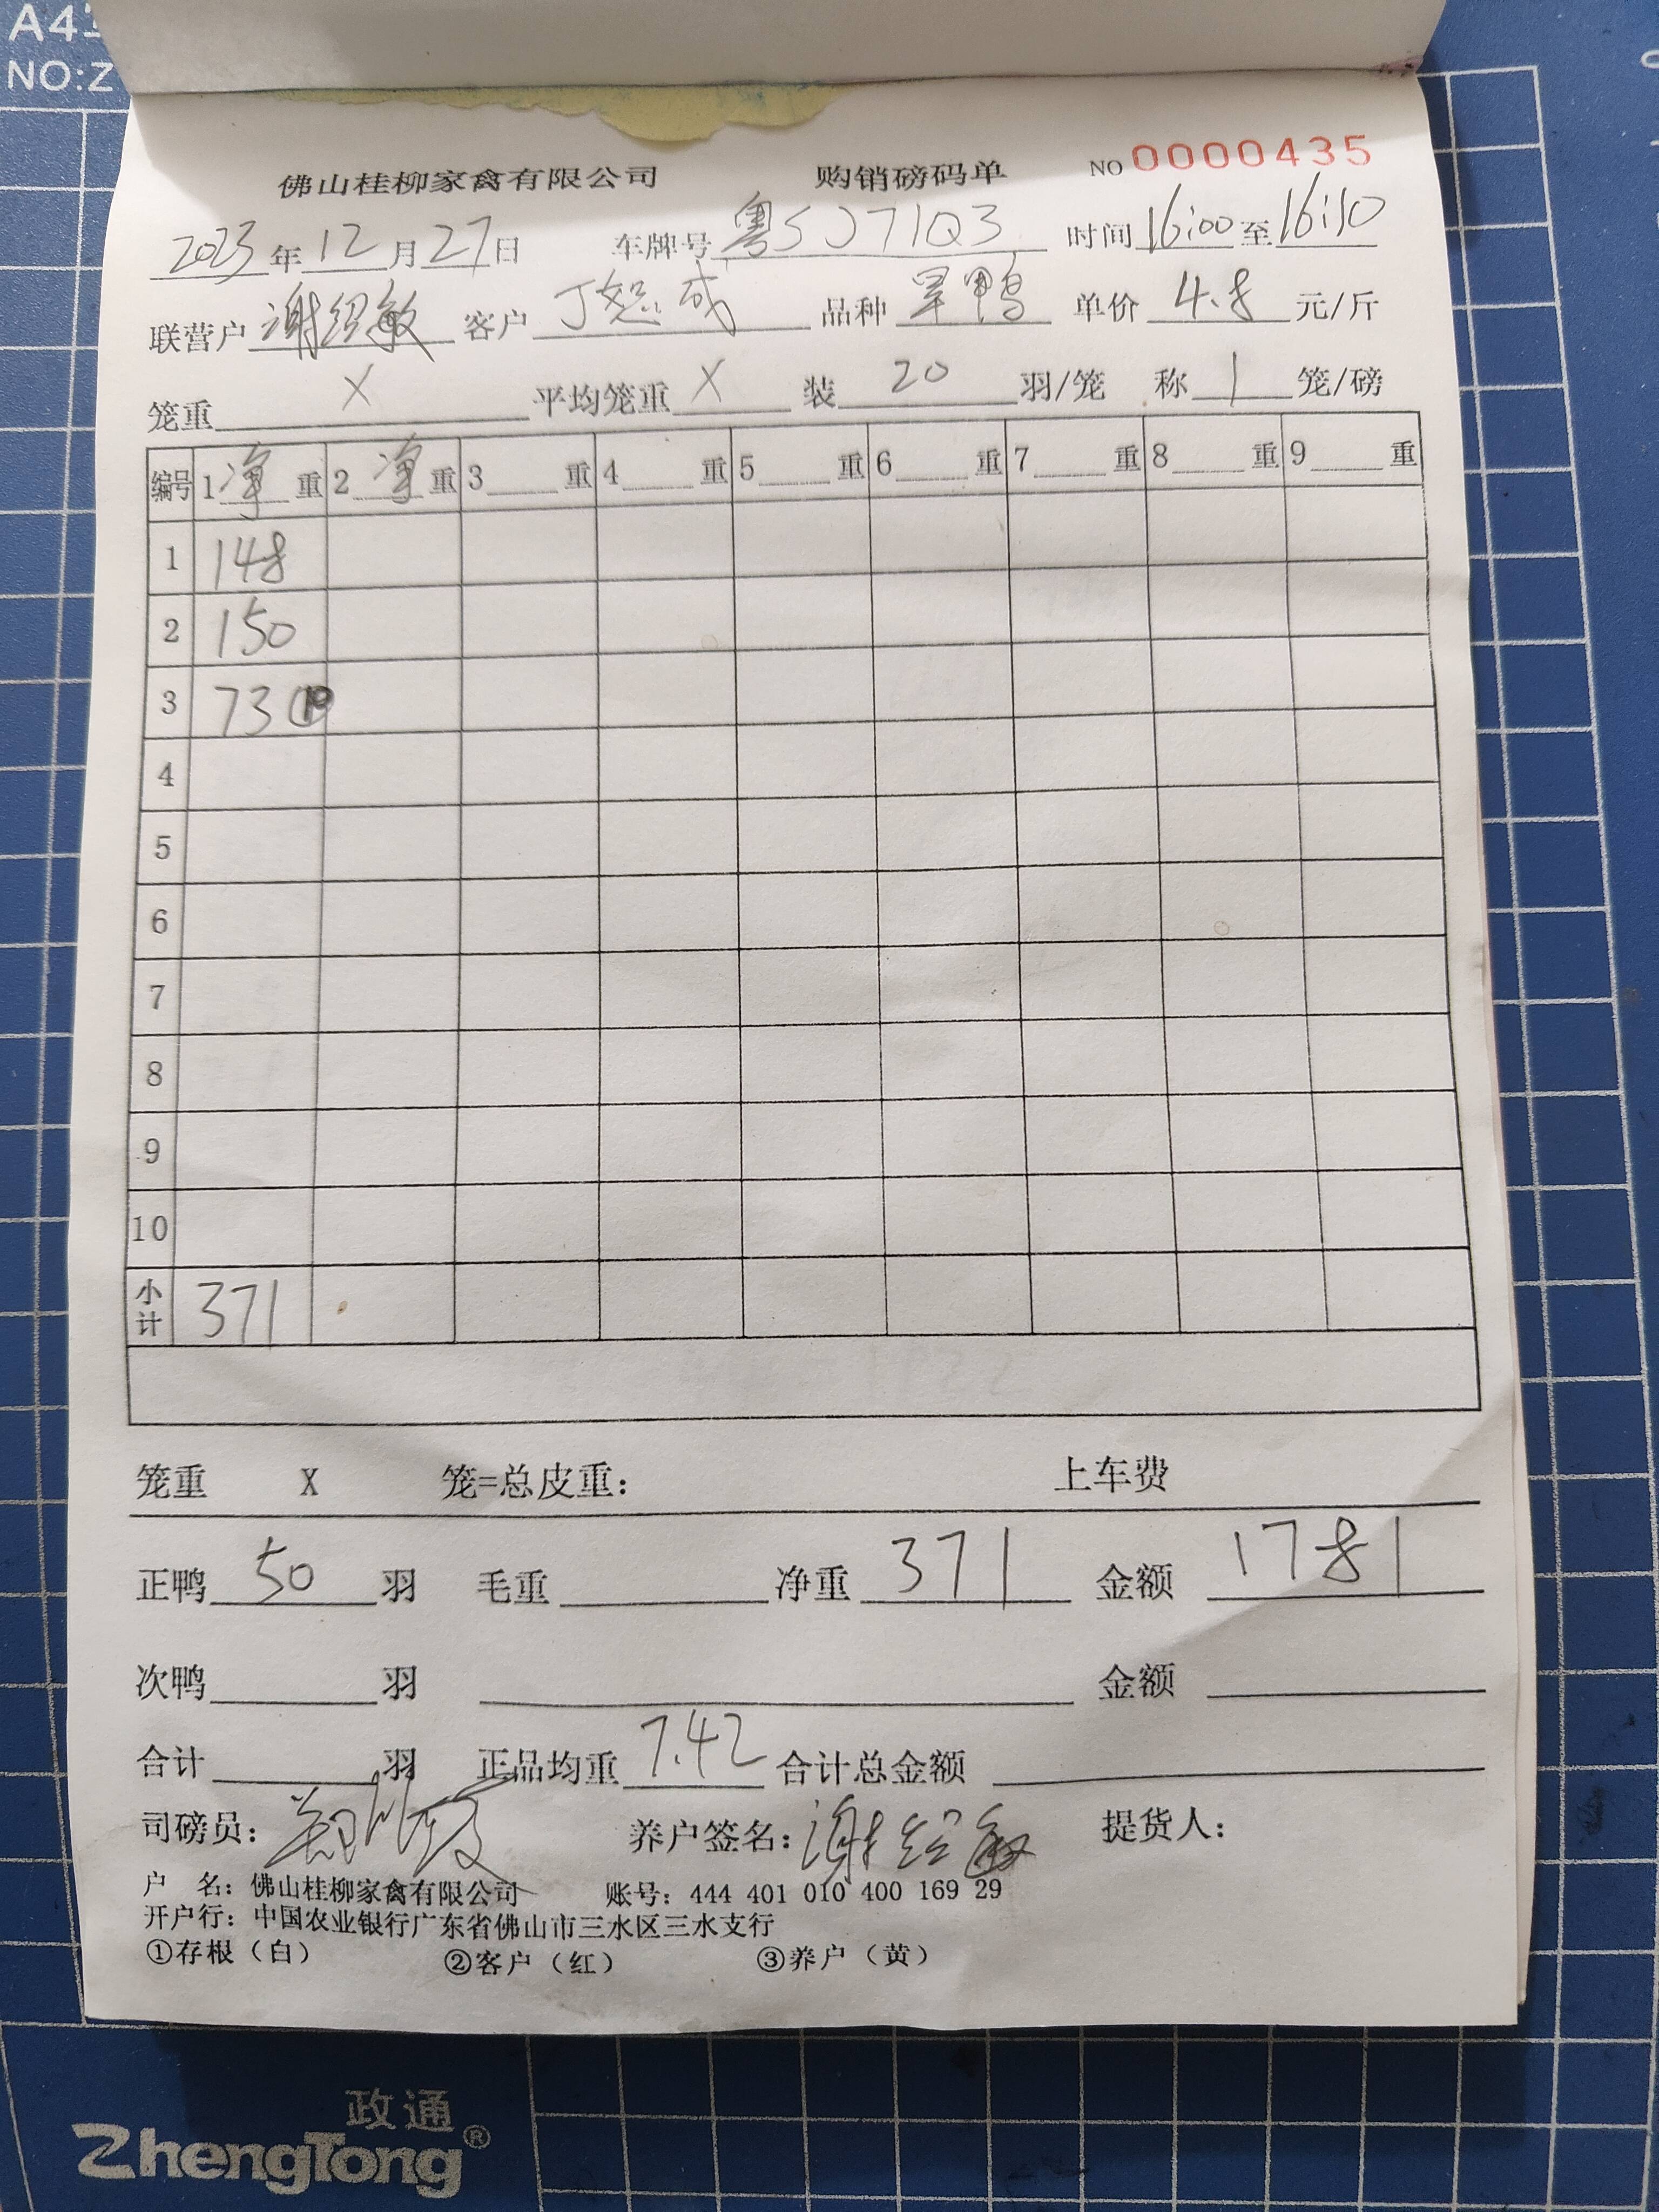 A4
NO:Z
佛山桂柳家禽有限公司 购销磅码单 NO 0000435
2023年12月27日 车牌号 粤SJ71Q3 时间 16:00 至 16:10
联营户 谢绍敏 客户 丁恕成 品种 旱鸭 单价 4.8 元/斤
笼重 X 平均笼重 X 装 20 羽/笼 称 1 笼/磅
编号 1 净 重 2 净 重 3 重 4 重 5 重 6 重 7 重 8 重 9 重
1 148
2 150
3 73 ⑩
4
5
6
7
8
9
10
小计 371
笼重 X 笼=总皮重: 上车费
正鸭 50 羽 毛重 净重 371 金额 1781
次鸭 羽 金额
合计 羽 正品均重 7.42 合计总金额
司磅员: 养户签名: 谢绍敏 提货人:
户 名: 佛山桂柳家禽有限公司 账号: 444 401 010 400 169 29
开户行: 中国农业银行广东省佛山市三水区三水支行
①存根(白) ②客户(红) ③养户(黄)
政通
ZhengTong®